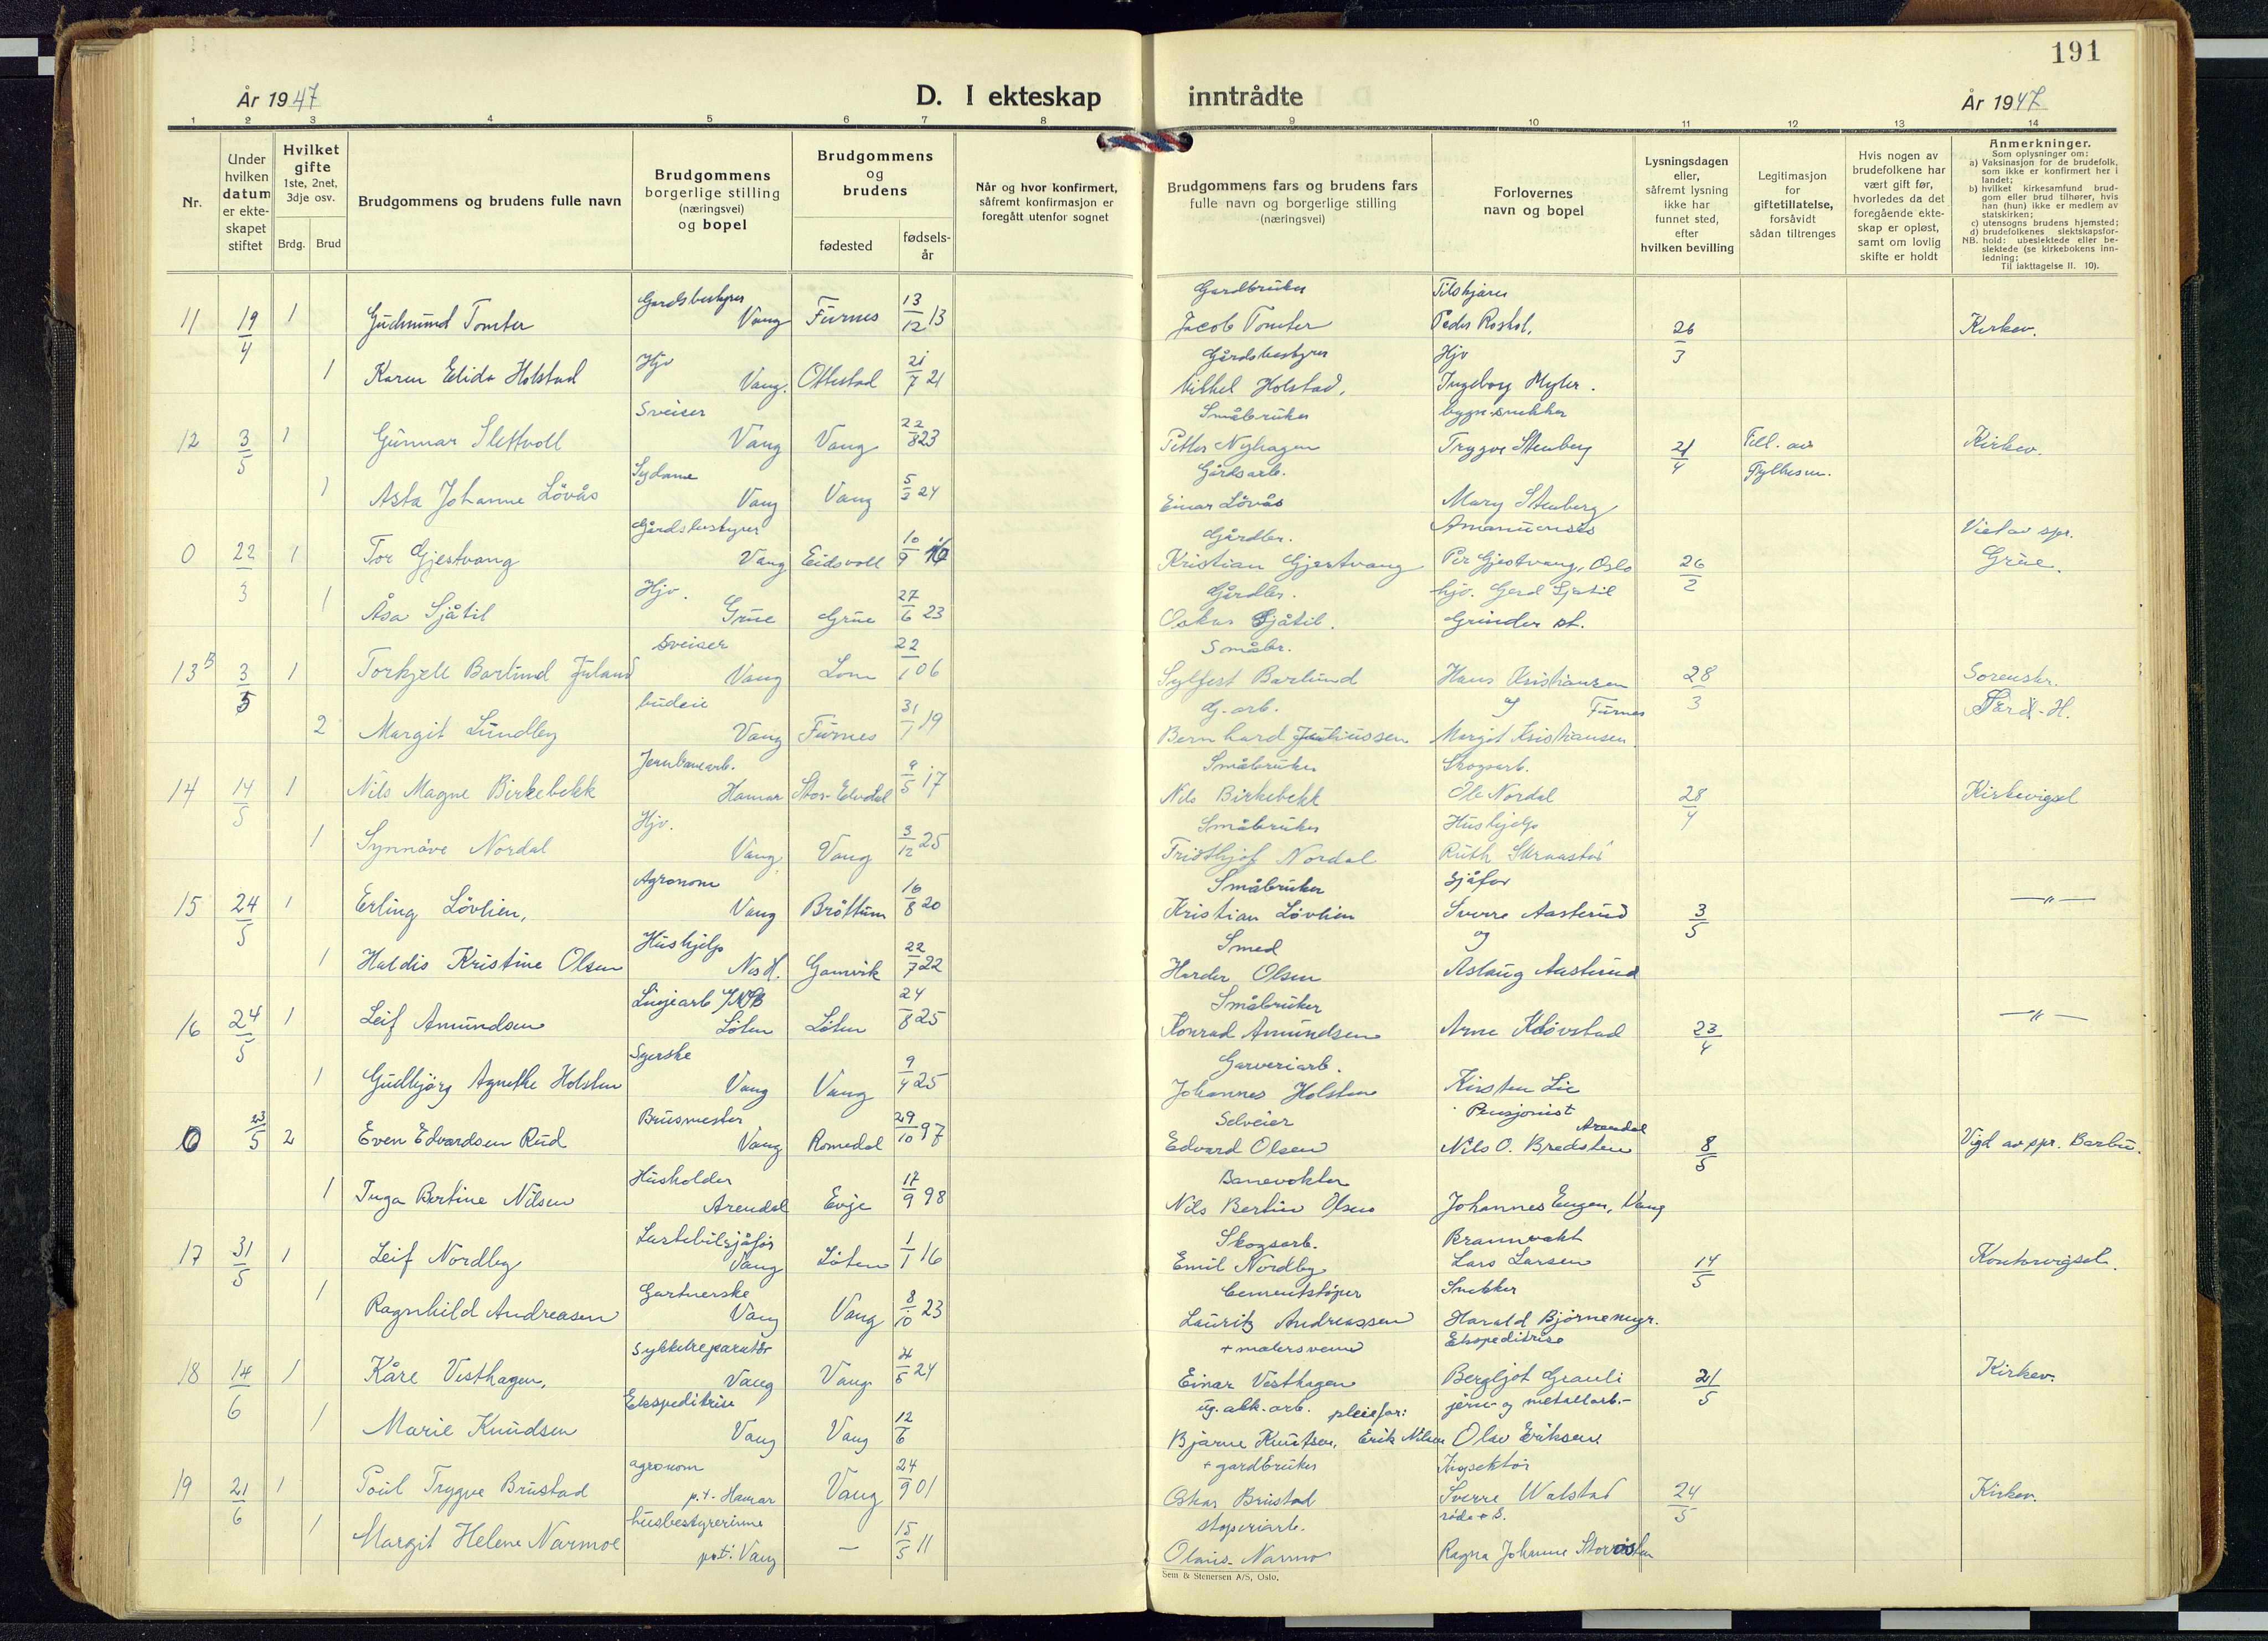 191
År 1947
D. I ekteskap inntrådte
År 1947
1 2 3 4 5 6 7 8 9 10 11 12 13 14
Nr.
Under hvilken datum er ekteskapet stiftet
Hvilket gifte 1ste, 2net, 3dje osv.
Brdg. Brud
Brudgommens og brudens fulle navn
Brudgommens borgerlige stilling (næringsvei) og bopel
Brudgommens og brudens
fødested
fødselsår
Når og hvor konfirmert, såfremt konfirmasjon er foregått utenfor sognet
Brudgommens fars og brudens fars fulle navn og borgerlige stilling (næringsvei)
Forlovernes navn og bopel
Lysningsdagen eller, såfremt lysning ikke har funnet sted, efter hvilken bevilling
Legitimasjon for giftetillatelse, forsåvidt sådan tiltrenges
Hvis nogen av brudefolkene har vært gift før, hvorledes da det foregående ekteskap er opløst, samt om lovlig skifte er holdt
Anmerkninger.
Som oplysninger om:
a) Vaksinasjon for de brudefolk, som ikke er konfirmert her i landet;
b) hvilket kirkesamfund brudgom eller brud tilhører, hvis han (hun) ikke er medlem av statskirken;
c) utensogns brudens hjemsted;
d) brudefolkenes slektskapsforhold: ubeslektede eller beslektede (se kirkebokens innledning;
NB.
Til iakttagelse II. 10).
Gardsbestyrer Gardbruker
11 19/4 1 Gudmund Tomter Vang Furnes 13/12 13 Jacob Tomter Peder 26/3 Kirkev.
Hjv Gårdsbestyrer Hjv
1 Karen Elida Holstad Vang. Ottestad 21/7 21 Mikkel Holstad, Ingeborg Myhr.
Sveiser Småbruker bygn.snekker
12 3/5 1 Gunnar Slettvoll Vang Vang 22/8 23 Petter Nyhagen Trygve Stenberg 21/4 Till. av Fylkesm. Kirkev.
Sydame Gårdsarb.
1 Asta Johanne Lövås Vang Vang 5/2 24 Einar Lövås Mary Stenberg
Gårdsbestyrer Gårdbr. Amanuensis
0 22/3 1 Tor Gjestvang Vang Eidsvoll 10/9 16 Kristian Gjestvang Per Gjestvang, Oslo 26/2 Viet av spr. Grue.
Hjv. Gårdbr. hjv. Gerd Sjåtil
1 Åsa Sjåtil Grue Grue 27/6 23 Oskar Sjåtil. Grinder st.
Sveiser Småbr.
13B 3/5 1 Torkjell Barlund Juland Vang Lom 22/1 06 Sylfest Barlund Hans Kristiansen 28/3 Sorenskr.
budeie G.arb. og Furnes
2 Margit Lundby Vang Furnes 31/1 19 Bernhard Juliussen Margit Kristiansen.
Jernbanearb. Småbruker Skogsarb.
14 14/5 1 Nils Magne Birkebekk Hamar Stor-Elvdal 9/5 17 Nils Birkebekk Ole Nordal 28/4 Kirkevigsel
Hjv. Småbruker Hushjelp
1 Synnöve Nordal Vang Vang 3/12 25 Fridthjof Nordal Ruth
Agronom Småbruker Sjåfør
15 24/5 1 Erling Lövlien, Vang Bröttum 16/8 20 Kristian Lövlien Sverre Aasterud 3/5 —"—
Hushjelp Smed og
1 Haldis Kristine Olsen Nes H. Gamvik 22/7 22 Harder Olsen Aslaug Aasterud
Linjearb NSB Småbruker
16 24/5 1 Leif Amundsen Löten Löten 24/8 25 Konrad Amundsen Arne Klövstad 23/4 —"—
Syerske Garveriarb.
1 Gudbjörg Agnethe Holsten Vang Vang 9/4 25 Johannes Holsten Kirsten Lie
Brusmester Selveier Pensjonist Arendal
0 23/5 2 Even Edvardsen Rud Vang Romedal 29/10 97 Edvard Olsen Nils O. Bredsten 8/5 Vigd av spr. Barbu.
Husholder Banevokter
1 Inga Bertine Nilsen Arendal Evje 17/9 98 Nils Bertin Olsen Johannes Engen, Vang
Lastebilsjåför Skogsarb. Brannvakt
17 31/5 1 Leif Nordby Vang Löten 1/1 16 Emil Nordby Lars Larsen 14/5 Kontorvigsel.
Gartnerske Cementstöper Snekker
1 Ragnhild Andreasen Vang Vang 8/10 23 Lauritz Andreassen Harald Björnemyr.
Sykkelreparatör + malersvenn Ekspeditrise
18 14/6 1 Kåre Vesthagen, Vang Vang 4/5 24 Einar Vesthagen Bergljot Grauli 21/5 Kirkev.
Ekspeditrise ug. alk. arb. pleiefar: jern- og metallarb.-
1 Marie Knudsen Vang Vang 12/6 Bjarne Knutsen, Erik Nilsen Olav Eriksen
agronom + gardbruker Inspektör
19 21/6 1 Poul Trygve Brustad p.t. Hamar Vang 24/9 01 Oskar Brustad Sverre Walstad 24/5 Kirkev.
husbestyrerinne støperiarb.
1 Margit Helene Narmoe p.t. Vang — 15/5 11 Olaus Narmo Ragna Johanne
Sem & Stenersen A/S, Oslo.